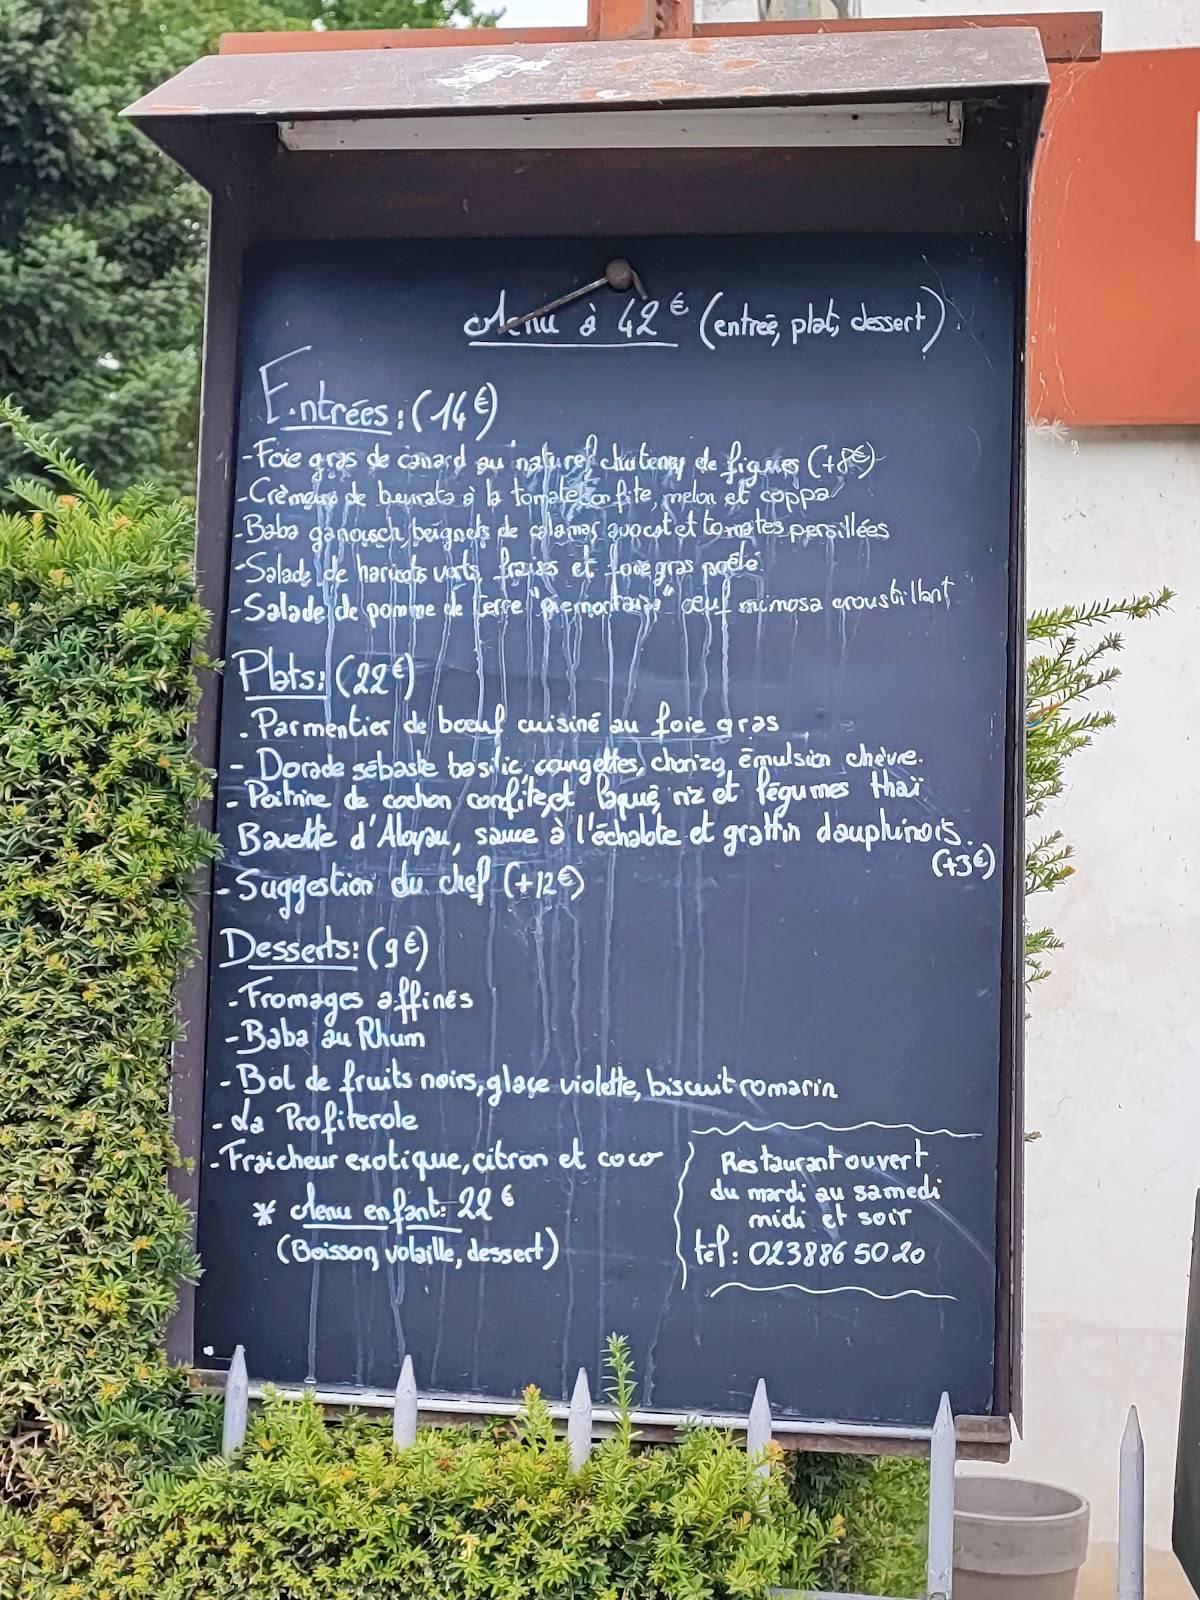 Menu à 42€ (entreé, plat, dessert)
Entrées: (14€)
-Foie gras de canard au naturel chuteney de figues (+8€)
-Crèmeux de burrata à la tomate confite, melon et coppa
-Baba ganousch, beignets de calamar, avocat et tomates persillées
-Salade de haricots verts, fraises et foie gras poêlé
-Salade de pomme de terre "piemontaise" œuf mimosa croustillant
Plats: (22€)
. Parmentier de bœuf cuisiné au foie gras
- Dorade sébaste basilic, courgettes, chorizo, Émulsion chèvre.
. Poitrine de cochon confite et laqué, riz et légumes thaï
Bavette d'Aloyau, sauce à l'échalote et grattin dauphinois.
(+3€)
- Suggestion du chef (+12€)
Desserts: (9€)
-Fromages affinés
-Baba au Rhum
-Bol de fruits noirs, glaçe violette, biscuit romarin
-La Profiterole
-Fraicheur exotique, çitron et coco
* Menu enfant: 22€
(Boisson, volaille, dessert)
Restaurant ouvert
du mardi au samedi
midi et soir
tél: 0238865020